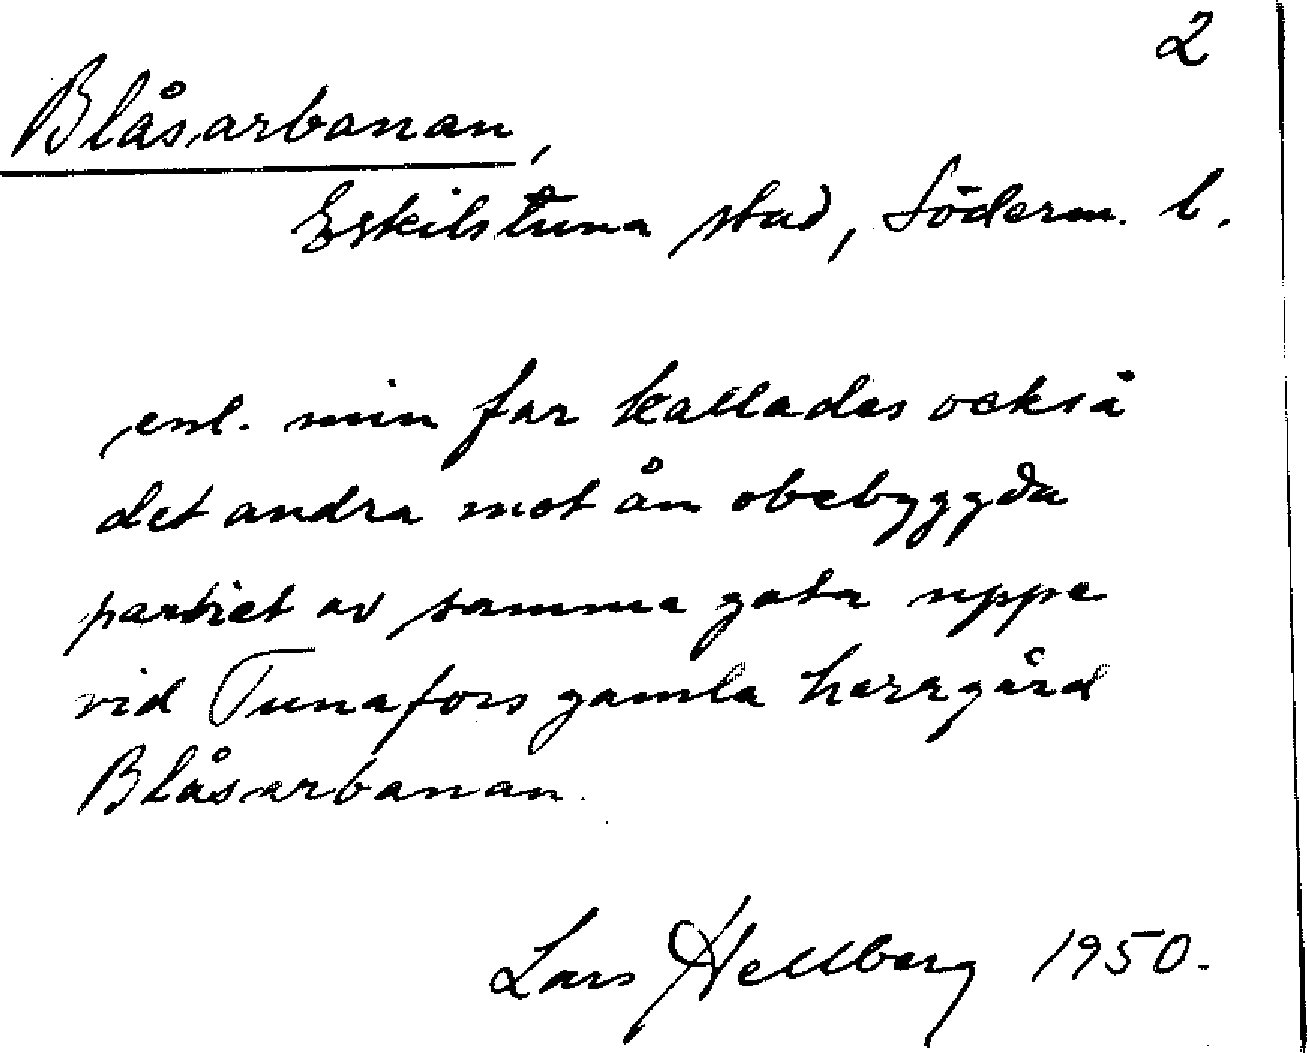 2
Blåsarbanan,
Eskilstuna stad, Söderm. l.
enl. min far kallades också
det andra mot ån obebyggda
partiet av samma gata uppe
vid Tunafors gamla herrgård
Blåsarbanan.
Lars Hellberg 1950.